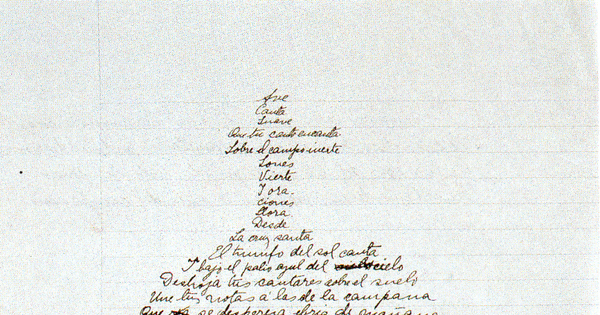 Ave
Canta
Suave
Que tu canto encanta
Sobre el campo inerte
Sones
Vierte
I ora-
ciones
Llora.
Desde
La cruz santa
El triunfo del sol canta
I bajo el palio azul del cielo
Deshoja tus cantares sobre el suelo
Une tus notas á las de la campana
Que ya se despereza ebria de mañana